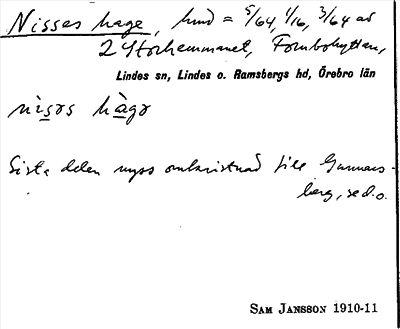 Nisses hage, hmd = 5/64, 1/16, 3/64 av
2 Storhemmanet, Fornbohyttan,
Lindes sn, Lindes o. Ramsbergs hd, Örebro län
nìsɘs hàgɘ
Sista delen nyss omkristnad till Gunnars-
berg, se d.o.
SAM JANSSON 1910-11